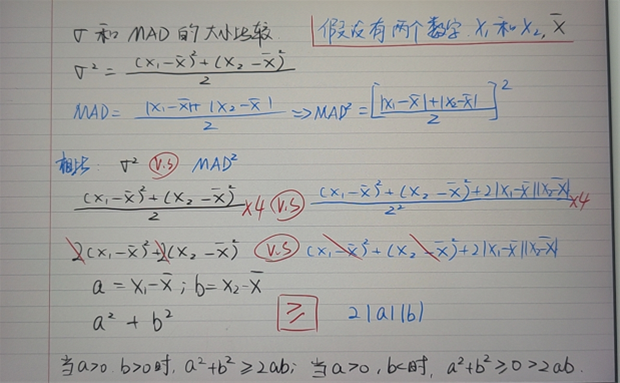 σ 和 MAD 的大小比较 假设有两个数字 x₁ 和 x₂, x̄
σ² = ((x₁-x̄)² + (x₂-x̄)²)/2
MAD = (|x₁-x̄| + |x₂-x̄|)/2 ⇒ MAD² = [(|x₁-x̄| + |x₂-x̄|)/2]²
相比: σ² V.S MAD²
((x₁-x̄)² + (x₂-x̄)²)/2 ×4 V.S ((x₁-x̄)² + (x₂-x̄)² + 2|x₁-x̄||x₂-x̄|)/2² ×4
2(x₁-x̄)² + 2(x₂-x̄)² V.S (x₁-x̄)² + (x₂-x̄)² + 2|x₁-x̄||x₂-x̄|
a = x₁-x̄ ; b = x₂-x̄
a² + b² ≥ 2|a||b|
当a>0 b>0时, a²+b² ≥ 2ab; 当a>0, b<时, a²+b² ≥ 0 > 2ab.